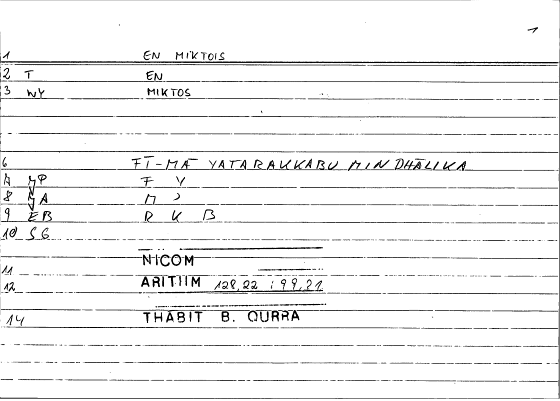 1
1 EN MIKTOIS
2 T EN
3 WY MIKTOS
6 FĪ-MĀ YATARAKKABU MIN DHĀLIKA
F Y
8 M
9 EB R K B
10 SG
NICOM
11
12 ARITIIM 128,22 : 99,21
14 THĀBIT B. QURRA